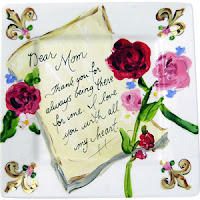 Dear Mom
Thank you for
always being there
for me. I love
you with all
my heart